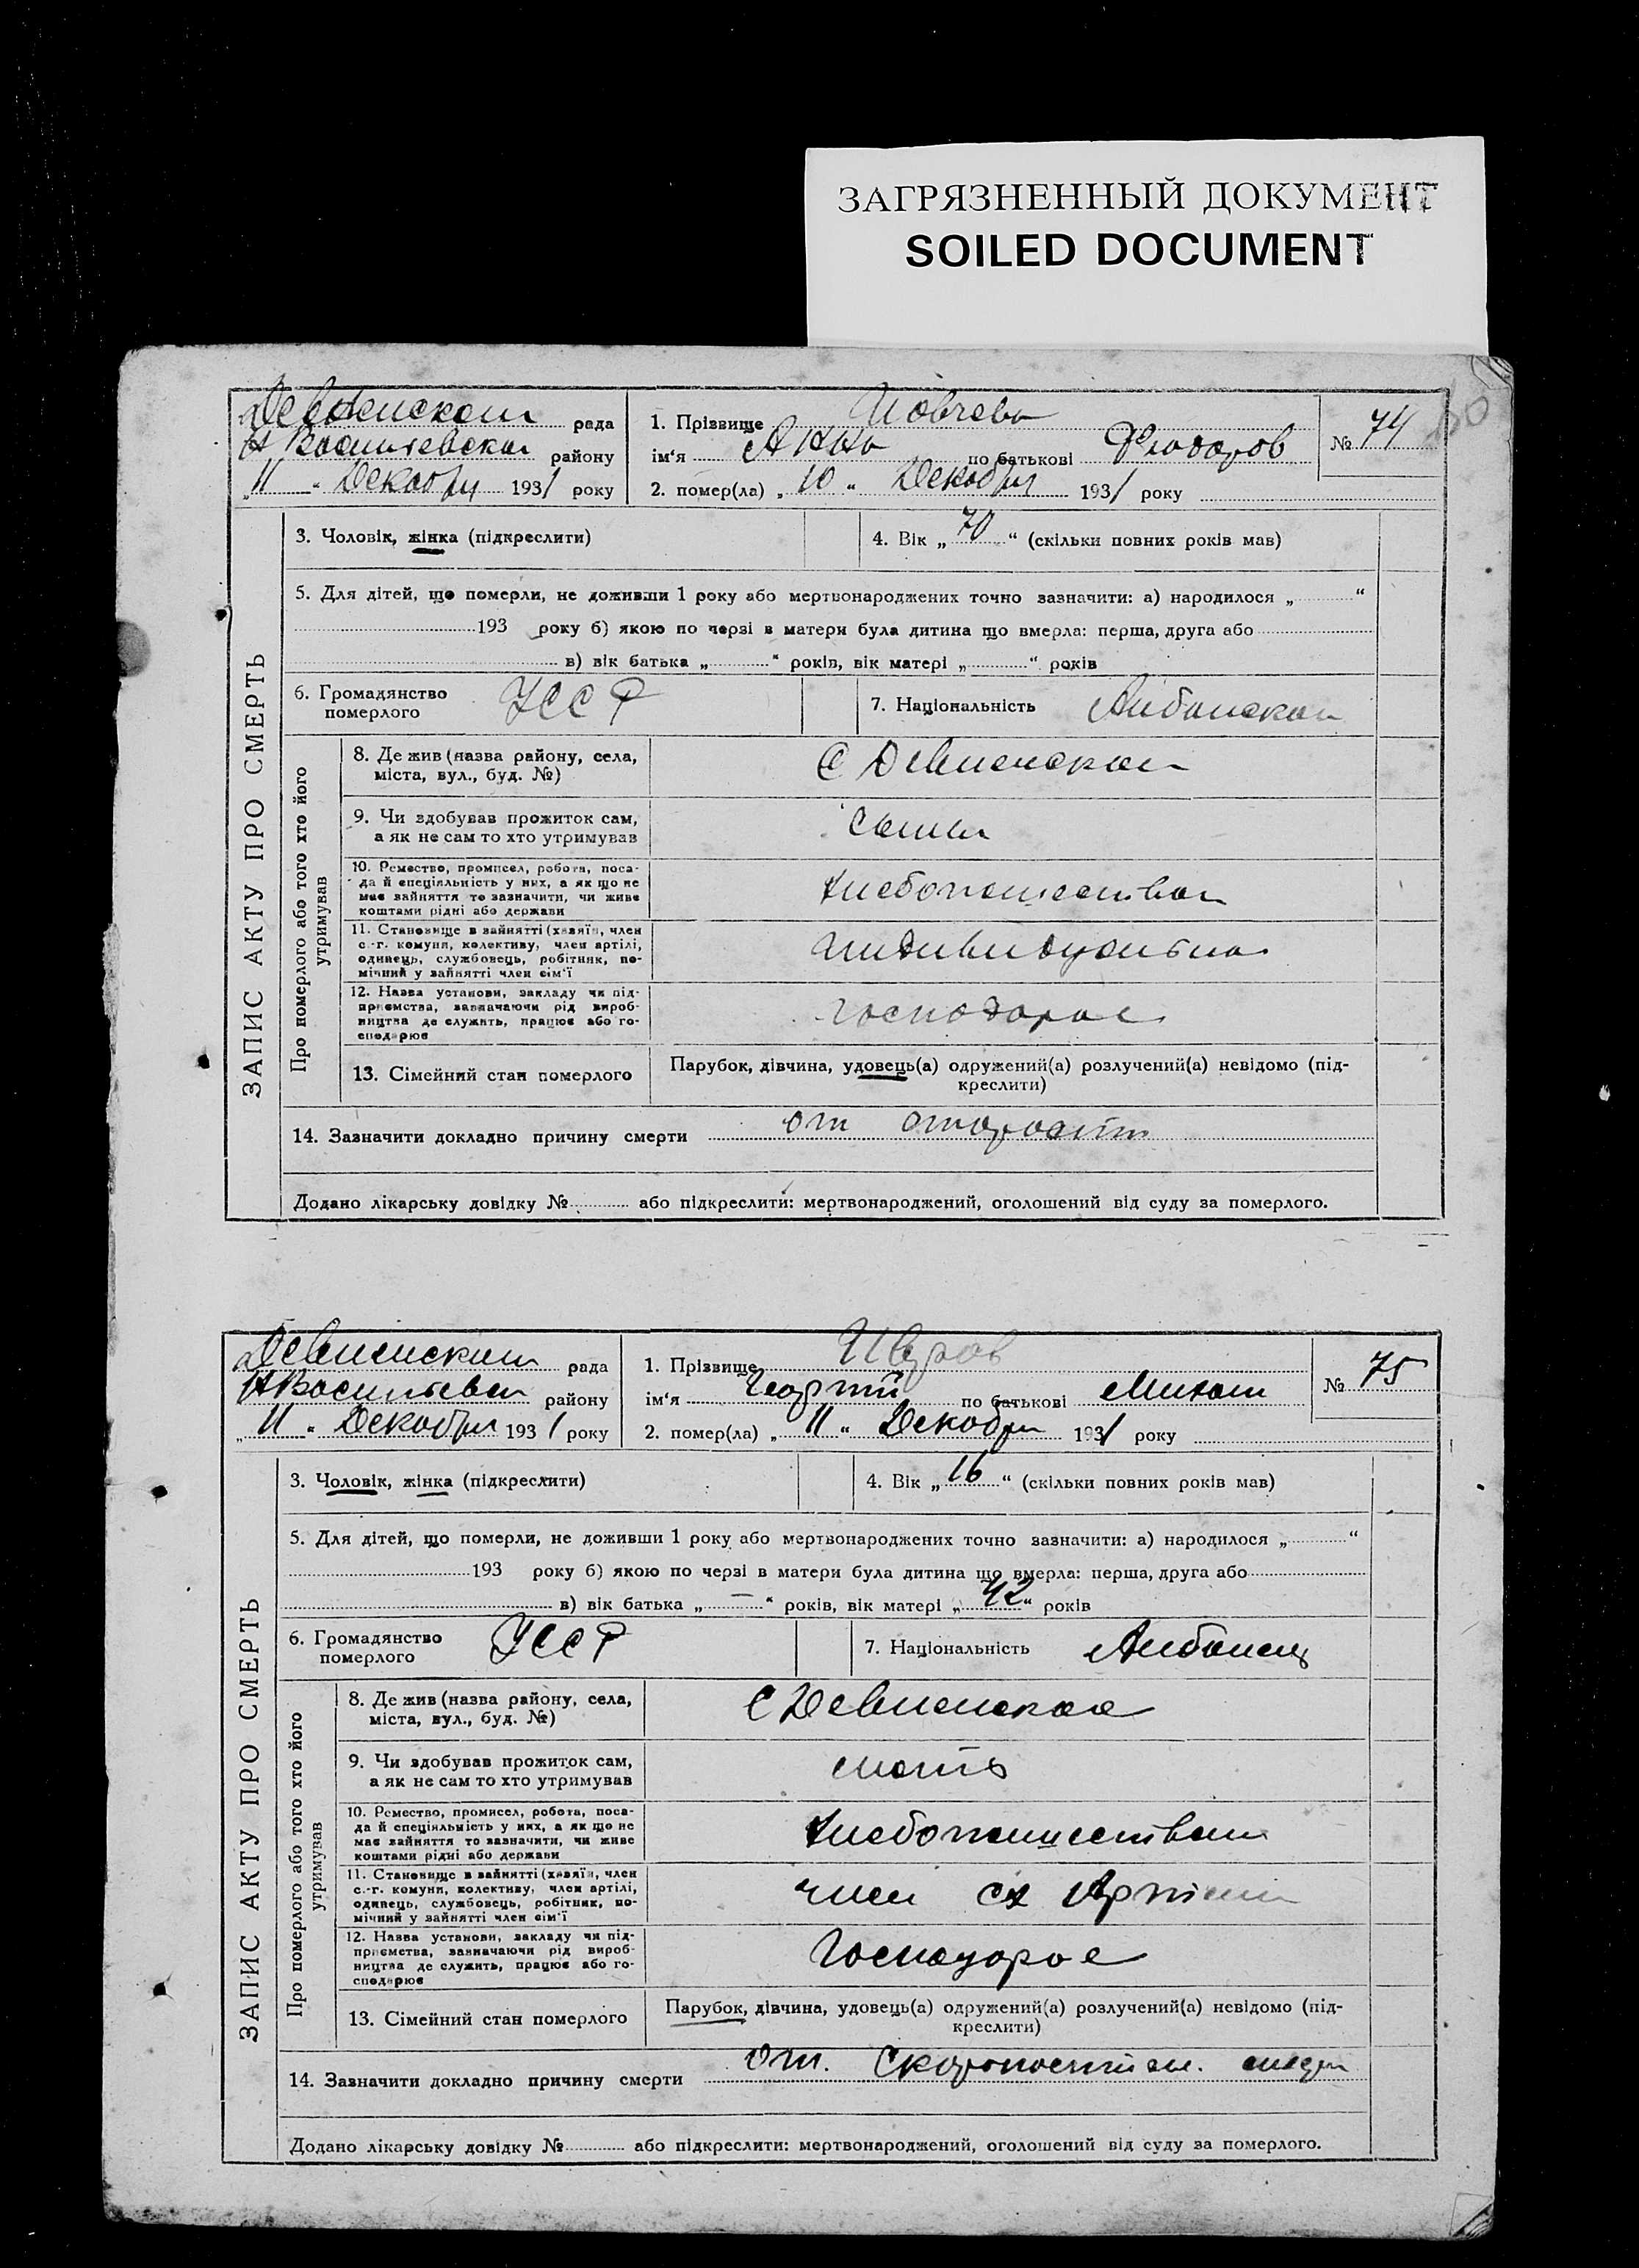 ЗАГРЯЗНЕННЫЙ ДОКУМЕНТ
SOILED DOCUMENT
рада
району
„11“ Декабря 1931 року
1. Прізвище Иовчева
ім'я Анна по батькові Феодоров
2. помер(ла) „10“ Декабря 1931 року
№ 74
ЗАПИС АКТУ ПРО СМЕРТЬ
3. Чоловік, жінка (підкреслити)
4. Вік „70“ (скільки повних років мав)
5. Для дітей, що померли, не доживши 1 року або мертвонароджених точно зазначити: а) народилося „ “
193 року б) якою по черзі в матери була дитина що вмерла: перша, друга або
в) вік батька „ “ років, вік матері „ “ років
6. Громадянство померлого УССР
7. Національність Албанская
Про померлого або того хто його утримував
8. Де жив (назва району, села,
міста, вул., буд. №)
С Девненская
9. Чи здобував прожиток сам,
а як не сам то хто утримував
10. Ремество, промисел, робота, поса-
да й спеціяльність у них, а як що не
має зайняття то зазначити, чи живе
коштами рідні або держави
Хлебопашество
11. Становище в зайнятті (хазяїн, член
с.-г. комуни, колективу, член артілі,
одинець, службовець, робітник, по-
мічний у зайнятті член сім'ї
Индивидуально
12. Назва установи, закладу чи під-
приємства, зазначаючи рід вироб-
ництва де служить, працює або го-
сподарює
господарое
13. Сімейний стан померлого
Парубок, дівчина, удовець(а) одружений(а) розлучений(а) невідомо (під-
креслити)
14. Зазначити докладно причину смерти от старости
Додано лікарську довідку № або підкреслити: мертвонароджений, оголошений від суду за померлого.
рада
району
„11“ Декабря 1931 року
1. Прізвище
ім'я Георгий по батькові Михаил
2. помер(ла) „11“ Декабря 1931 року
№ 75
ЗАПИС АКТУ ПРО СМЕРТЬ
3. Чоловік, жінка (підкреслити)
4. Вік „16“ (скільки повних років мав)
5. Для дітей, що померли, не доживши 1 року або мертвонароджених точно зазначити: а) народилося „ “
193 року б) якою по черзі в матери була дитина що вмерла: перша, друга або
в) вік батька „—“ років, вік матері „42“ років
6. Громадянство померлого УССР
7. Національність Албанец
Про померлого або того хто його утримував
8. Де жив (назва району, села,
міста, вул., буд. №)
С Девненская
9. Чи здобував прожиток сам,
а як не сам то хто утримував
мать
10. Ремество, промисел, робота, поса-
да й спеціяльність у них, а як що не
має зайняття то зазначити, чи живе
коштами рідні або держави
Хлебопашество
11. Становище в зайнятті (хазяїн, член
с.-г. комуни, колективу, член артілі,
одинець, службовець, робітник, по-
мічний у зайнятті член сім'ї
член сх Артели
12. Назва установи, закладу чи під-
приємства, зазначаючи рід вироб-
ництва де служить, працює або го-
сподарює
Господарое
13. Сімейний стан померлого
Парубок, дівчина, удовець(а) одружений(а) розлучений(а) невідомо (під-
креслити)
14. Зазначити докладно причину смерти от.
Додано лікарську довідку № або підкреслити: мертвонароджений, оголошений від суду за померлого.